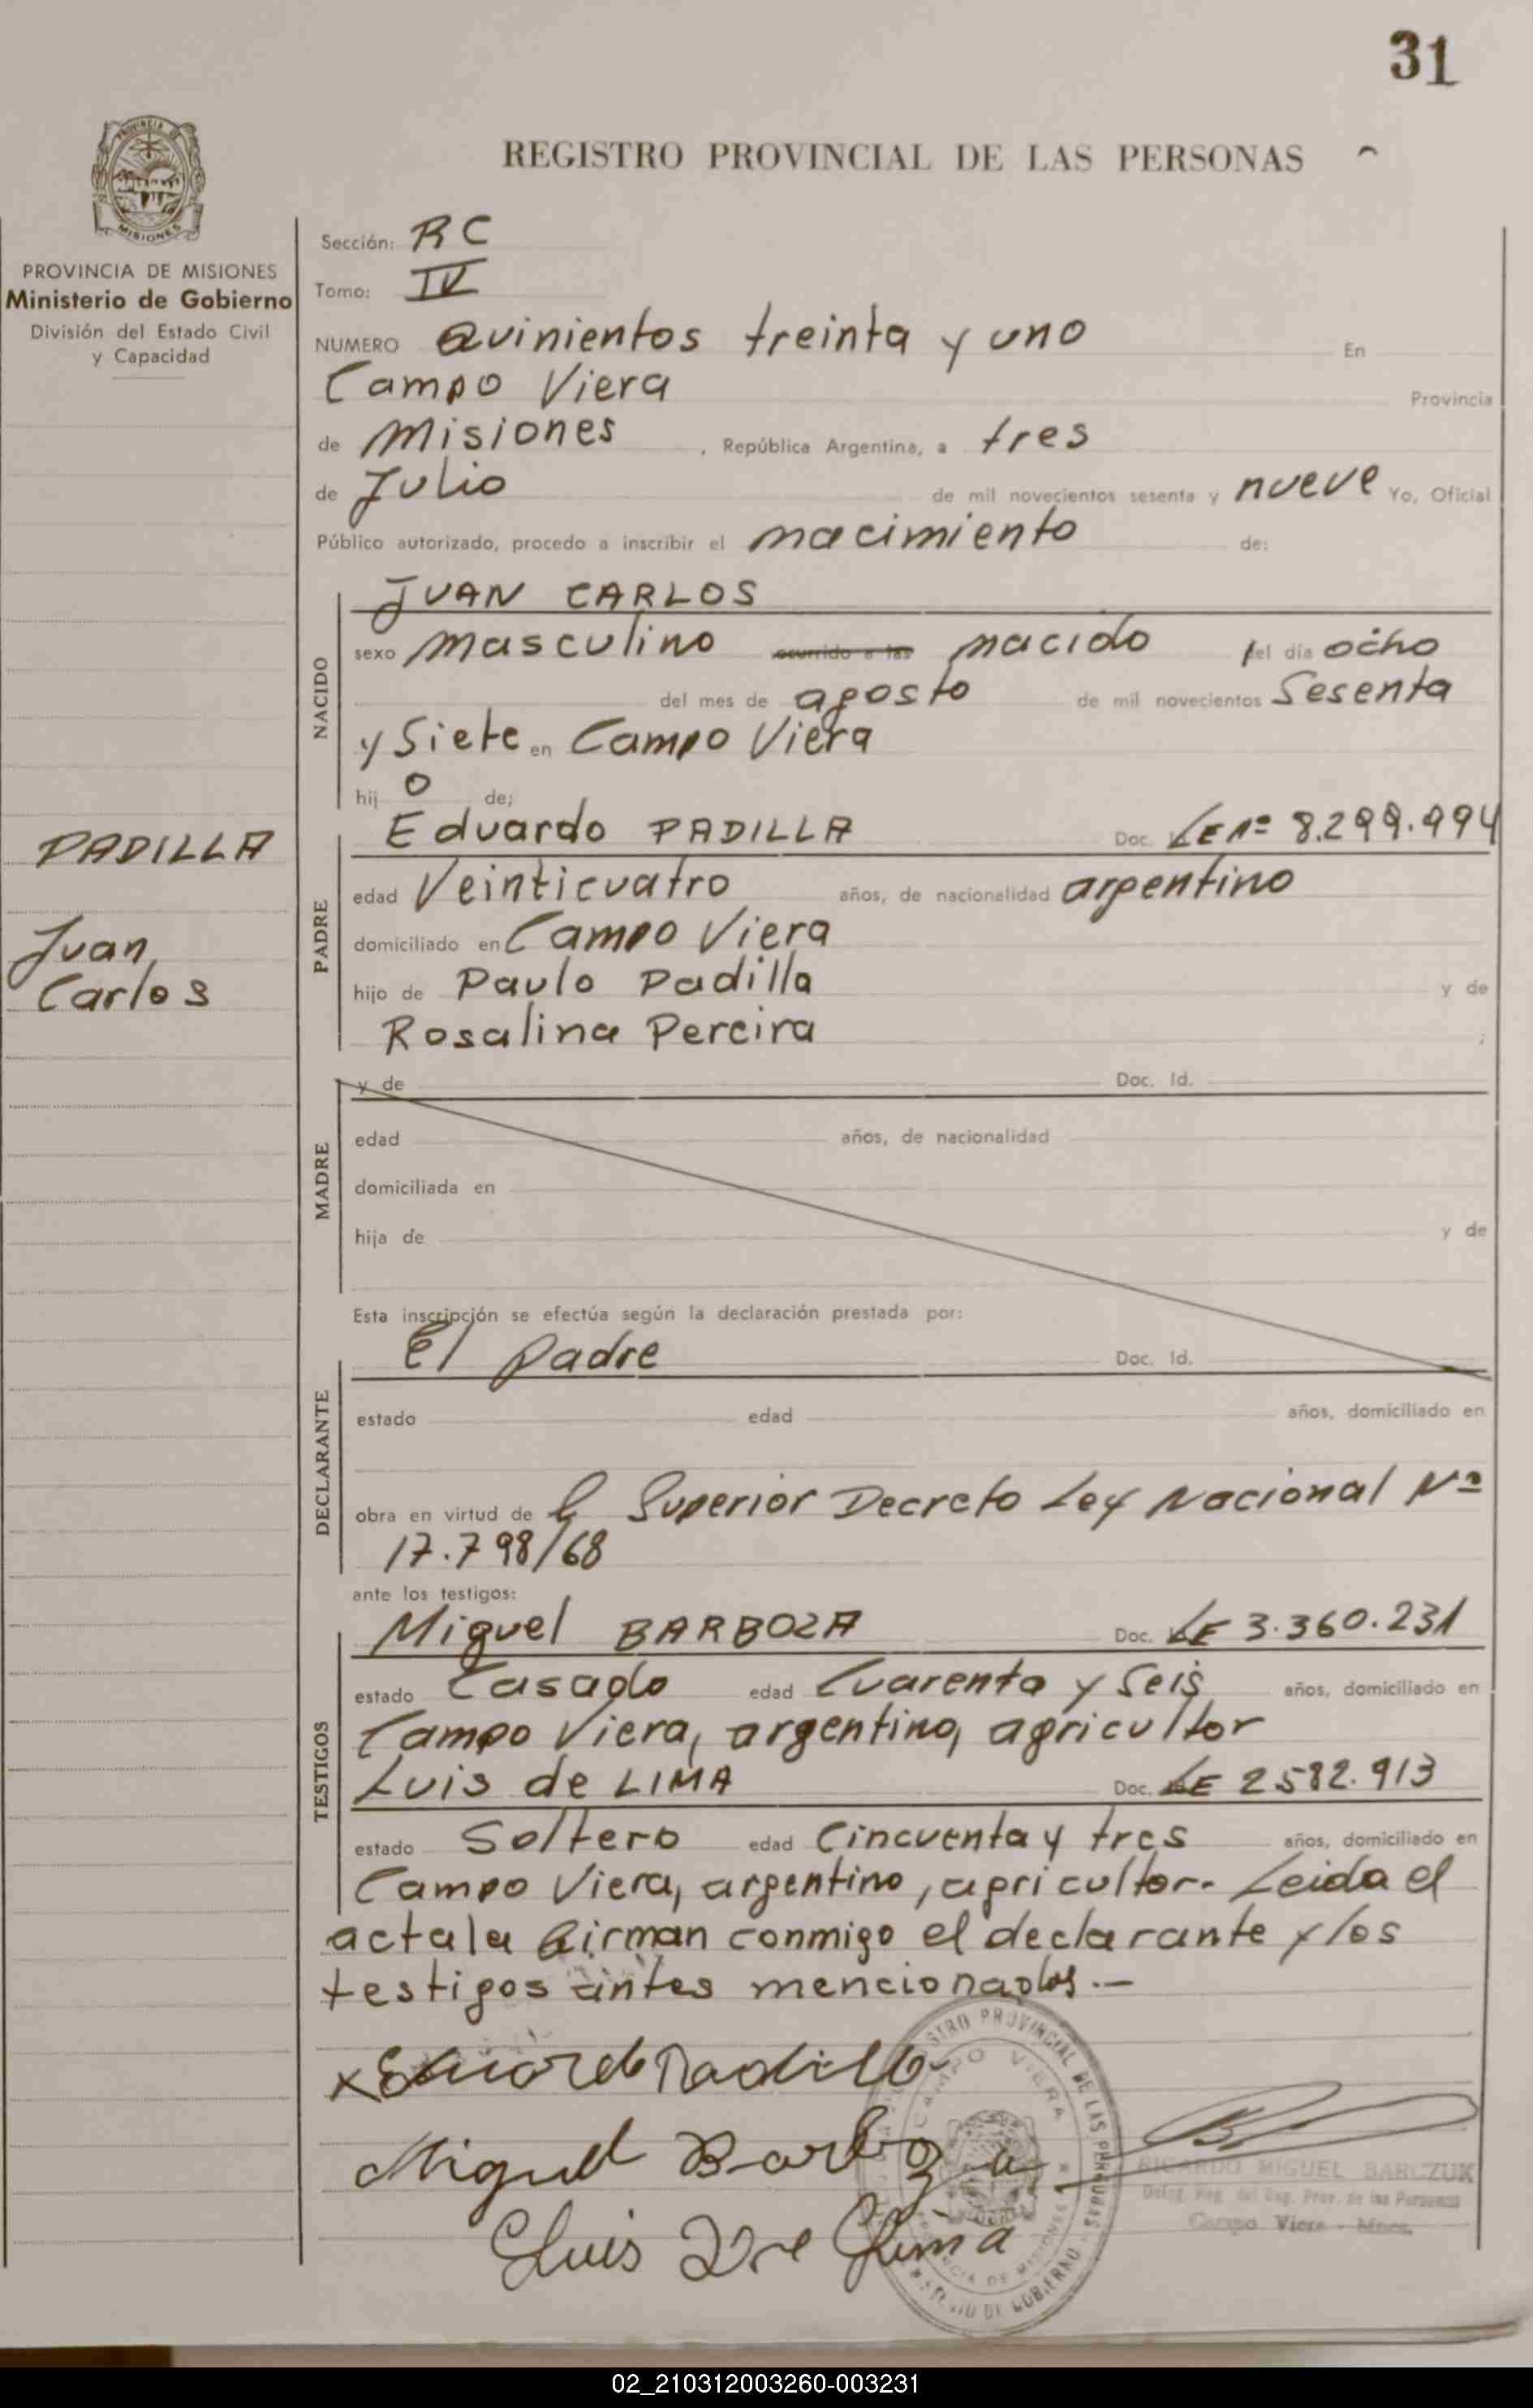 31
REGISTRO PROVINCIAL DE LAS PERSONAS
PROVINCIA DE MISIONES
PROVINCIA DE MISIONES
Ministerio de Gobierno
División del Estado Civil
y Capacidad
Sección: RC
Tomo: IV
NUMERO Quinientos treinta y uno En
Campo Viera Provincia
de Misiones , República Argentina, a tres
de Julio de mil novecientos sesenta y nueve Yo, Oficial
Público autorizado, procedo a inscribir el nacimiento de:
NACIDO
JUAN CARLOS
sexo masculino ocurrido a las nacido el día ocho
del mes de agosto de mil novecientos Sesenta
y Siete en Campo Viera
hij o de;
PADILLA
Juan
Carlos
PADRE
Eduardo PADILLA Doc. LE Nº 8.299.994
edad Veinticuatro años, de nacionalidad argentino
domiciliado en Campo Viera
hijo de Paulo Padilla y de
Rosalina Pereira ;
MADRE
y de Doc. Id.
edad años, de nacionalidad
domiciliada en
hija de y de
Esta inscripción se efectúa según la declaración prestada por:
DECLARANTE
El padre Doc. Id.
estado edad años, domiciliado en
obra en virtud de Superior Decreto Ley Nacional Nº
17.798/68
ante los testigos:
TESTIGOS
Miguel BARBOZA Doc. LE 3.360.231
estado Casado edad Cuarenta y Seis años, domiciliado en
Campo Viera, argentino, agricultor
Luis de LIMA Doc. LE 2582.913
estado Soltero edad Cincuenta y tres años, domiciliado en
Campo Viera, argentino, agricultor.- Leida el
acta la firman conmigo el declarante y los
testigos antes mencionados.-
x Eduardo Padilla
Miguel Barboza
Luis De Lima
REGISTRO PROVINCIAL DE LAS PERSONAS
CAMPO VIERA
PROVINCIA DE MISIONES
MINISTERIO DE GOBIERNO
RICARDO MIGUEL BARCZUK
Deleg. Reg. del Reg. Prov. de las Personas
Campo Viera - Mnes.
02_210312003260-003231